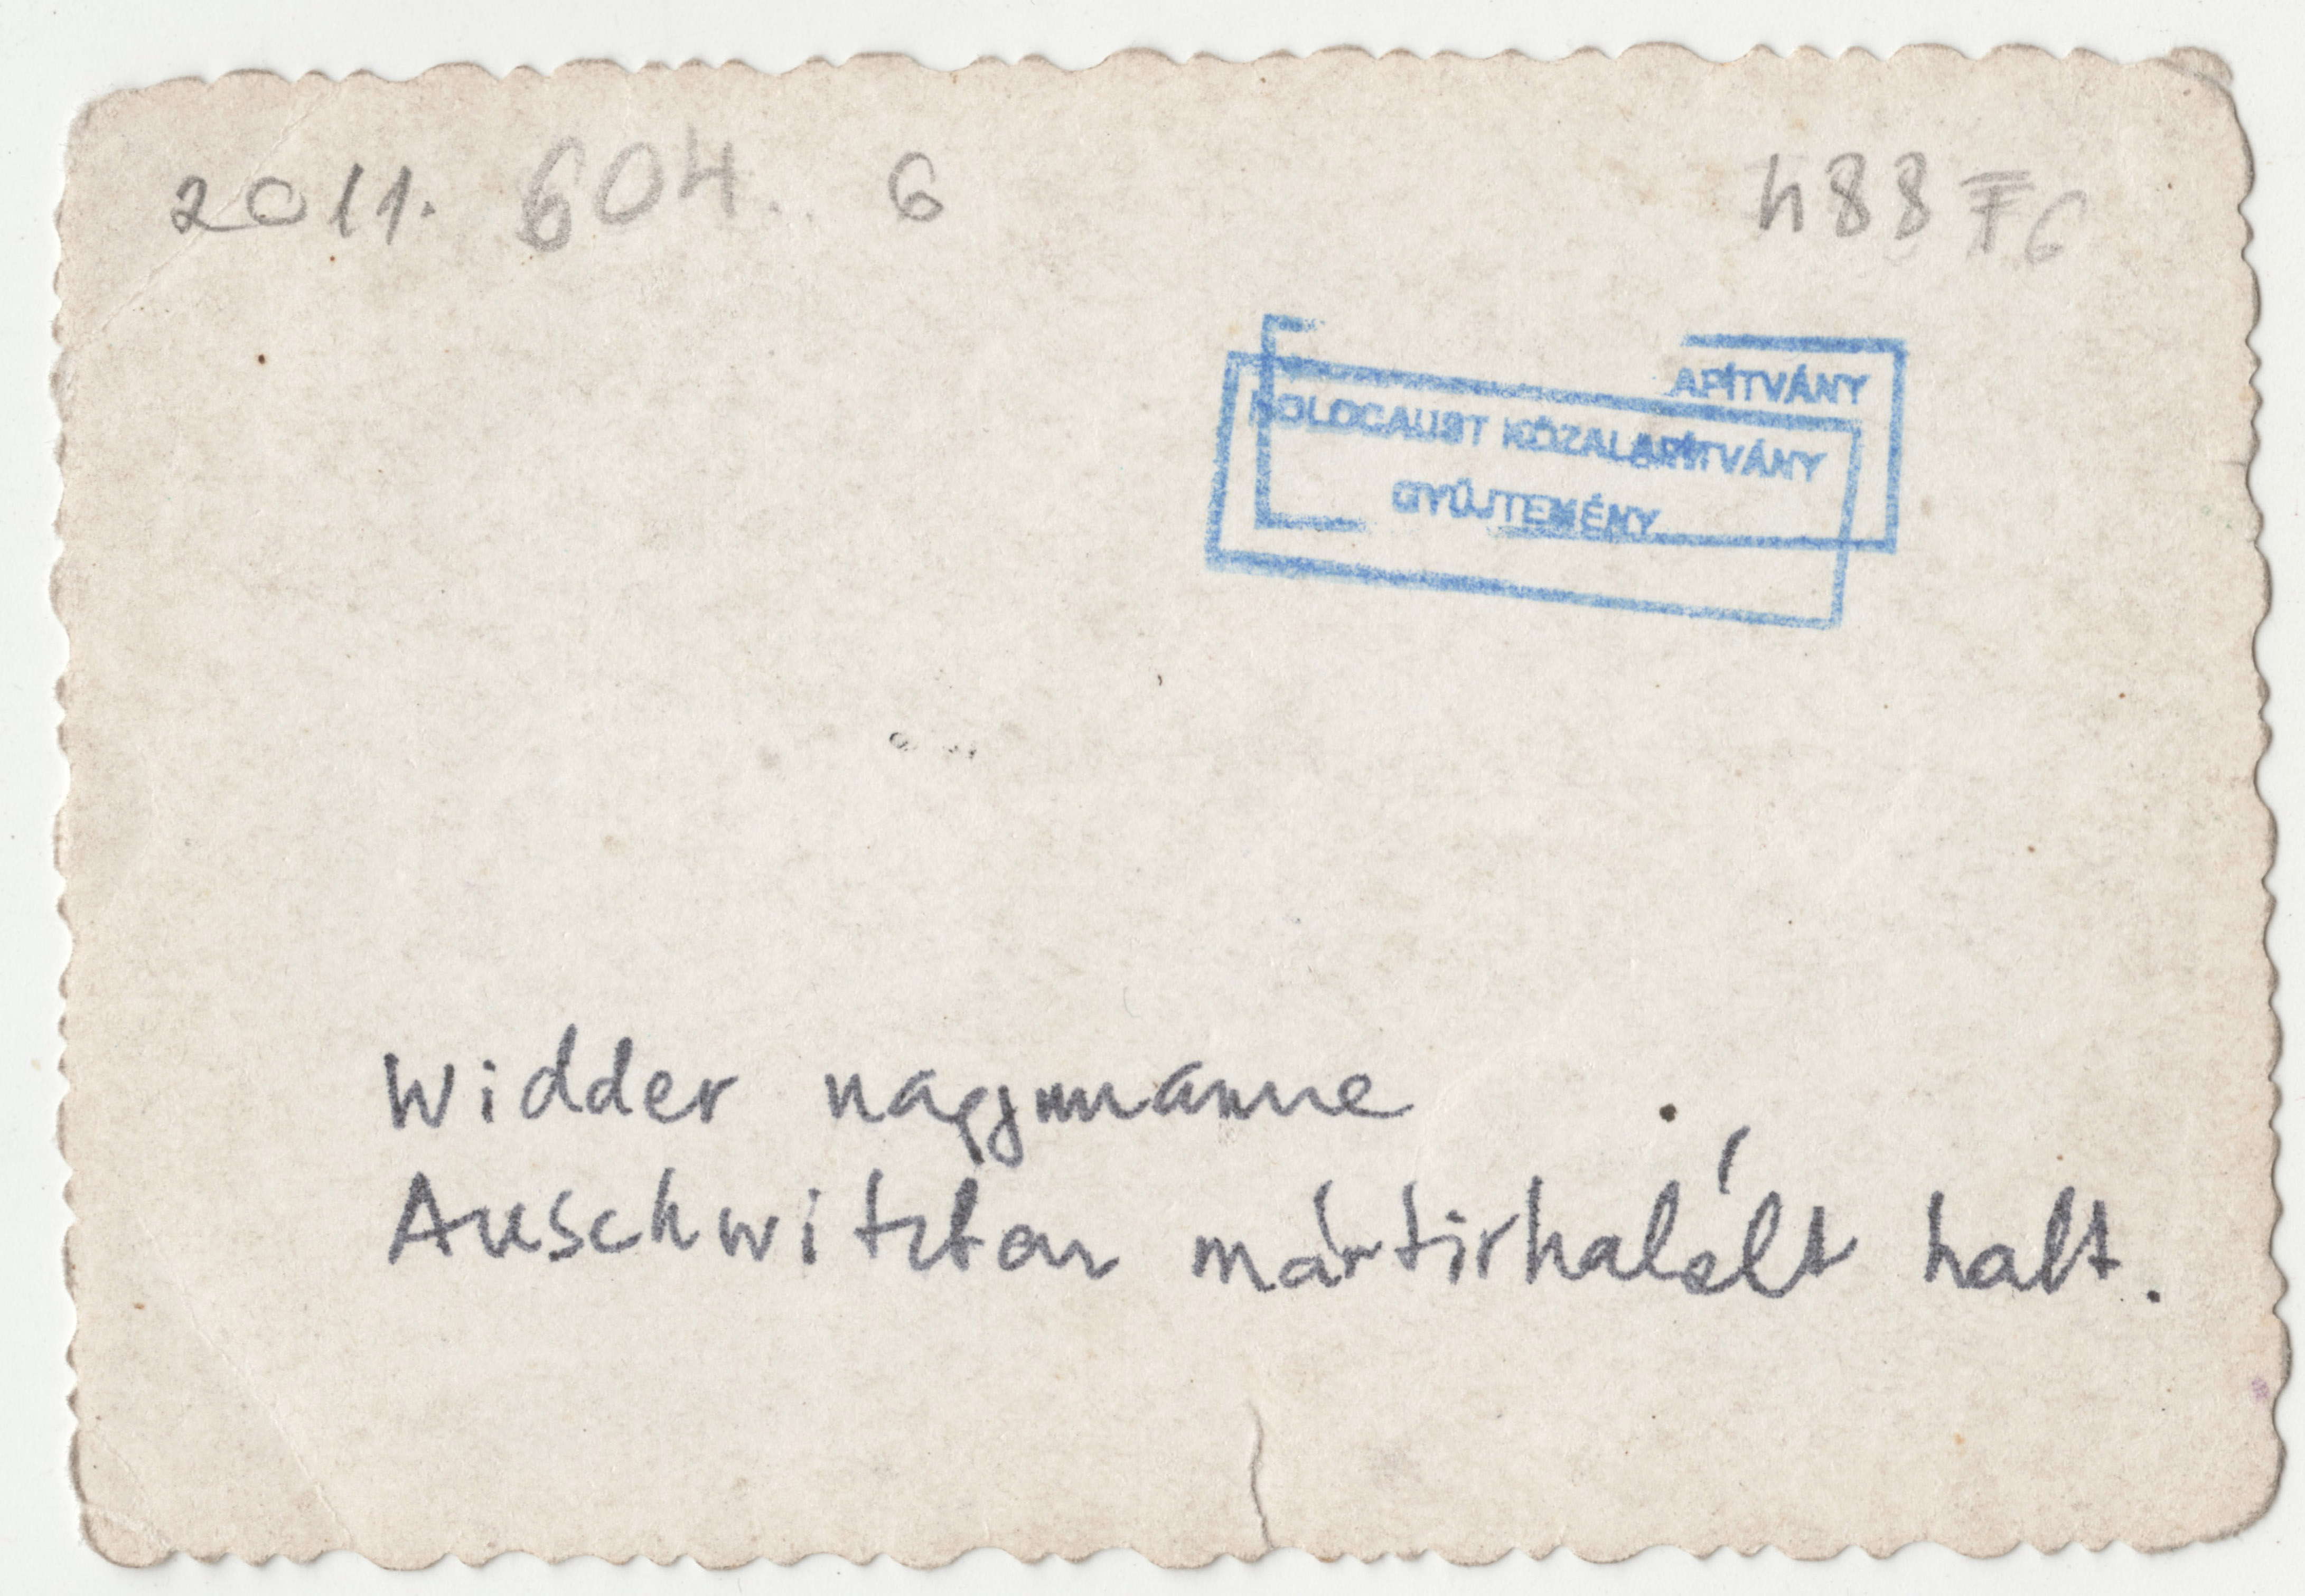 2011. 604. 6
488 F6
APÍTVÁNY
HOLOCAUST KÖZALAPÍTVÁNY
GYŰJTEMÉNY
Widder nagymama
Auschwitzban mártirhalált halt.